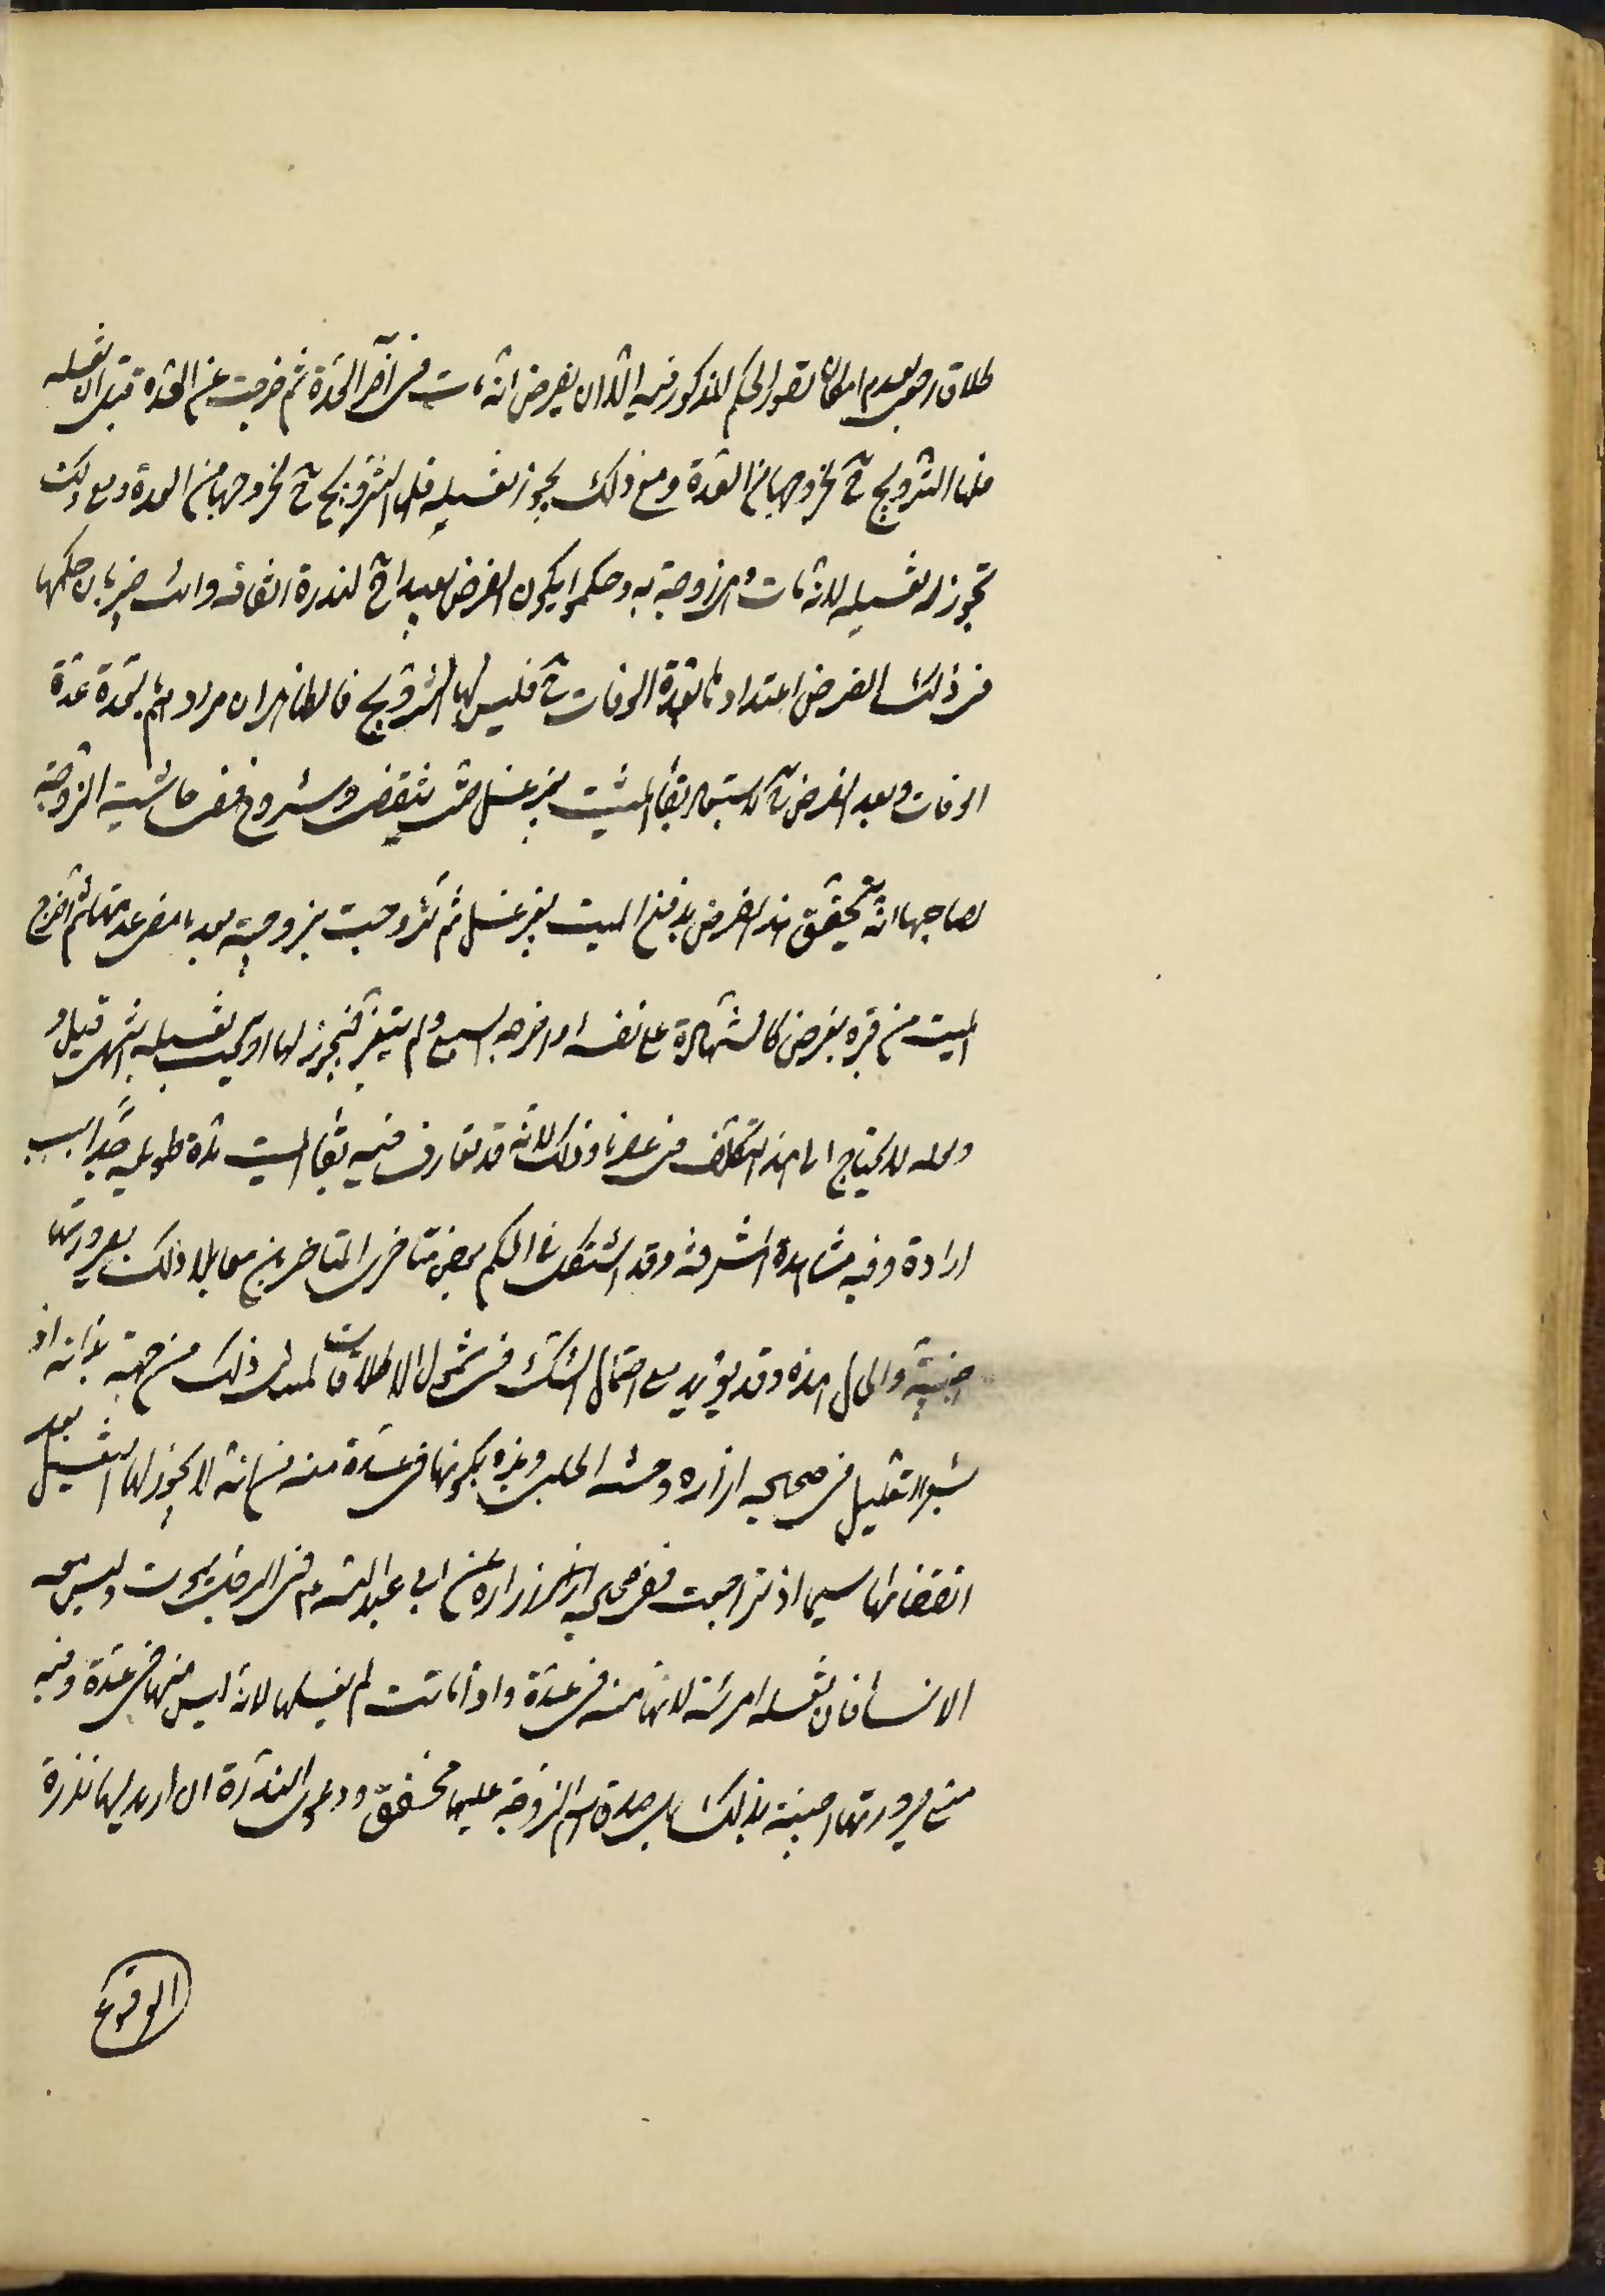 طلاق رجعي لعدم امكان تصور الحكم المذكور فيه الا ان يفرض انه مات في آخر العدة ثم خرجت عن العدة قبل ان تغسله
فلها التزويج ح لخروجها من العدة ومع ذلك يجوز تغسيله فلها التزويج ح لخروجها من العدة ومع ذلك
يجوز له تغسيله لانه مات والزوجية به وحكموا بكون الفرض بعيدا ح لندرة اتفاقه وانت خبير بان حكمها
في ذلك الفرض اعتدادها بعدة الوفات ح فليس لها التزويج فالظاهر ان مرادهم بالعدة عدة
الوفات وبعد الفرض ح لاستبعاد بقاء الميت بغير غسل حتى ينقضي وفي حاشية الروضة
لصاحبها انه يتحقق هذا الفرض بدفن الميت بغير غسل ثم تزوجت بعد مضي عدتها ثم اخرج
الميت من قبره بفرض كالشهادة على نفسه او اخرجه السبع ولم يتغير فيجوز لها او يجب تغسيله انتهى قيل و
ولعله لا يحتاج الى هذا التكلف في عصرنا وذلك لانه قد تعارف فيه بقاء الميت مدة طويلة جدا لسبب
ارادة دفنه مشاهدة المشرفة وقد استشكل في الحكم بعض متأخري المتأخرين معللا ذلك بصيرورتها
اجنبية والحال هذه وقد يؤيد مع احتمال الشك في شمول الاطلاقات لمثل ذلك من جهة ندرته اذ
التعليل في صحيحة زرارة وحسنة الحلبي وغيره بكونها في عدة منه من انه لا يجوز لها التغسيل بعد
انقضائها سيما اذ تزوجت ففي صحيحة زرارة عن ابي عبد الله ع في الرجل يموت وليس معه
الا نساء قال تغسله امرئته لانها منه في عدة واذا ماتت لم يغسلها لانه ليس منها في عدة وفيه
منع صيرورتها اجنبية بذلك بل صدق اسم الزوجة عليها محقق ودعوى الندرة ان اريد بها ندرة
الوقوع